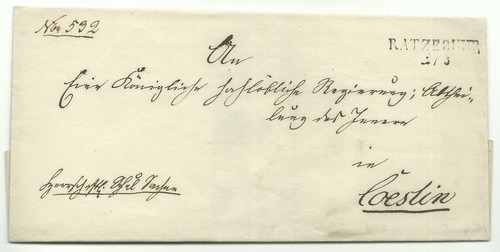 No 532
RATZEBUHR
2/3
An
Eine Königliche hochlöbliche Regierung, Abthei-
lung des Innern
in
Coeslin
Herrschaftl. Schul Sachen